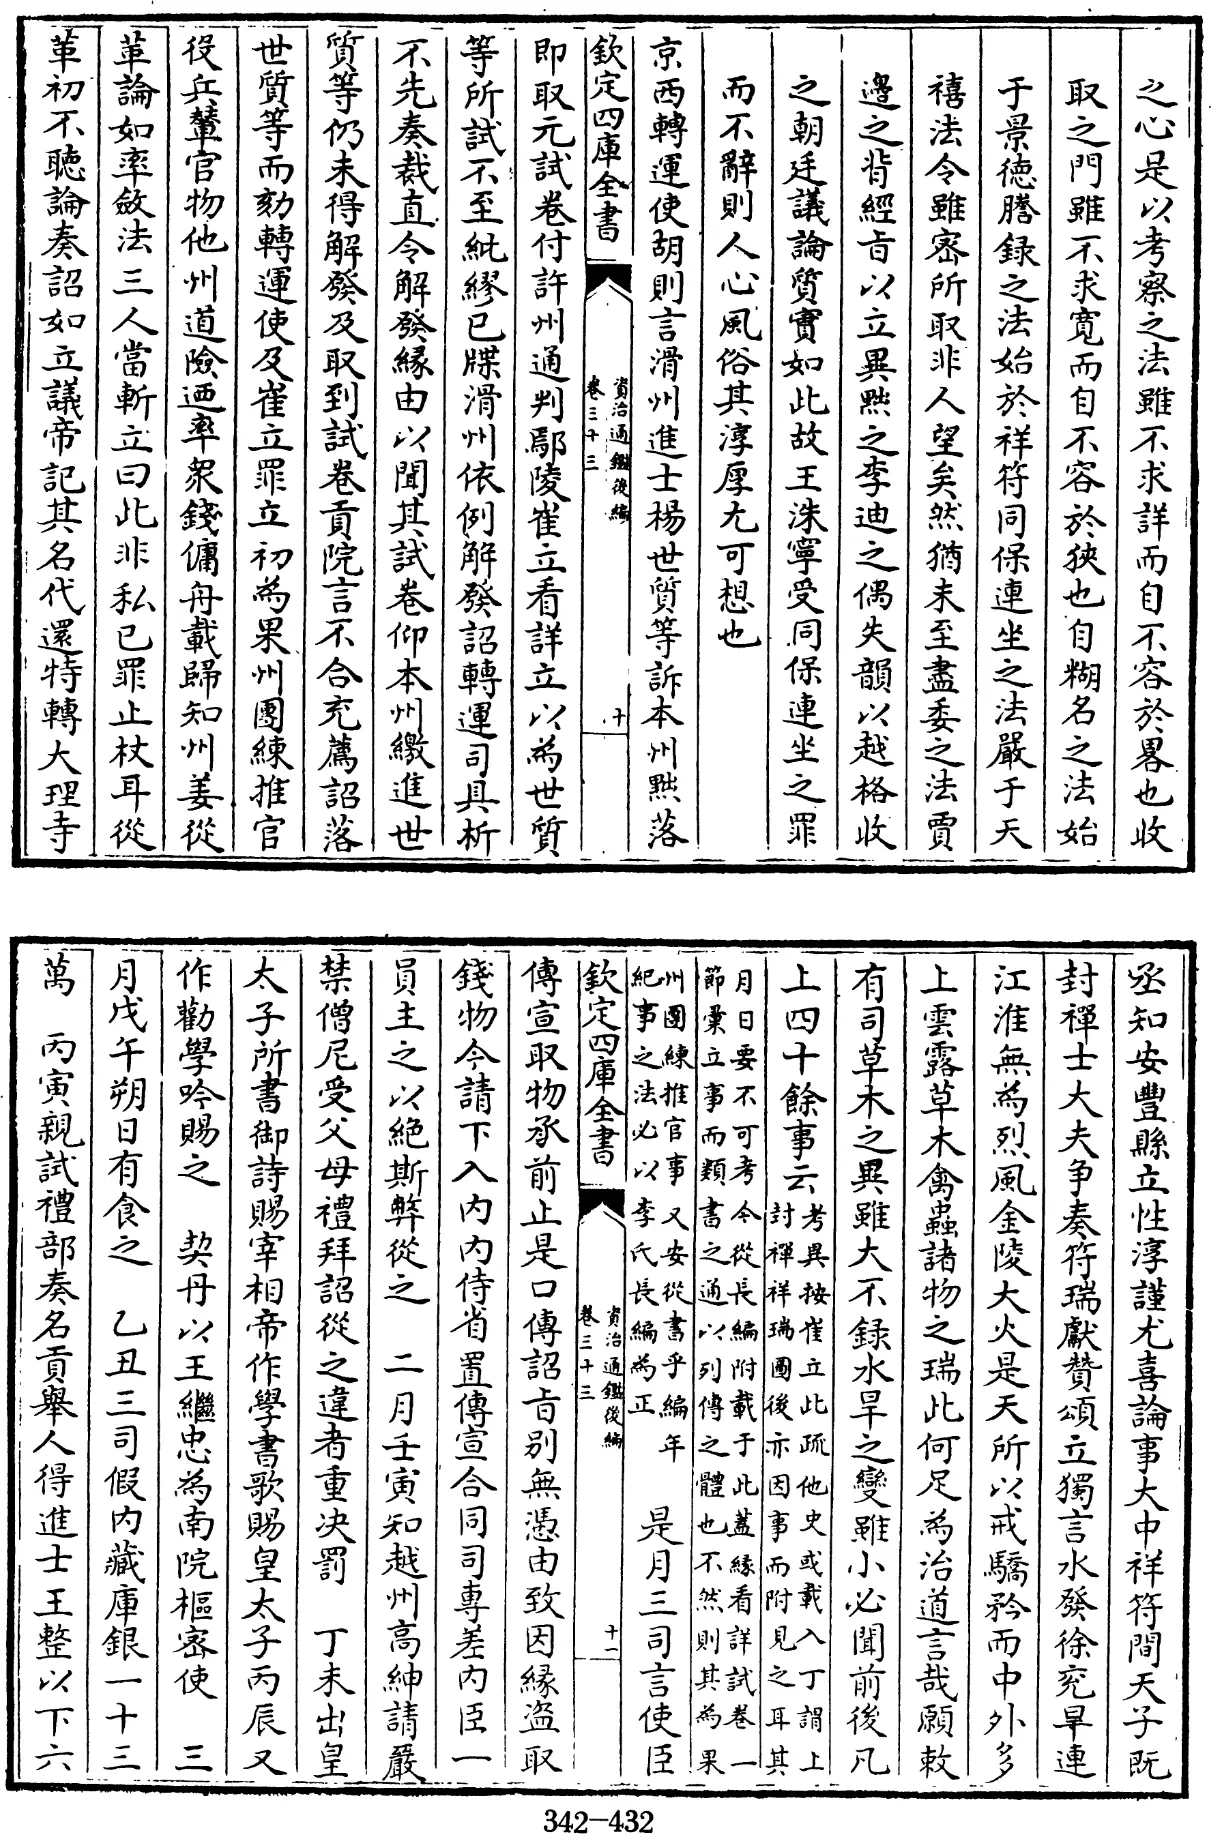 之心是以考察之法雖不求詳而自不容於畧也收
取之門雖不求寛而自不容於狹也自糊名之法始
于景德謄録之法始於祥符同保連坐之法嚴于天
禧法令雖宻所取非人望矣然猶未至盡委之法賈
邊之背經㫖以立異黜之李迪之偶失韻以越格收
之朝廷議論質實如此故王洙寧受同保連坐之罪
而不辭則人心風俗其淳厚尤可想也
京西轉運使胡則言滑州進士楊世質等訴本州黜落
欽定四庫全書
資治通鑑後編
卷三十三
十
即取元試卷付許州通判鄢陵崔立看詳立以為世質
等所試不至紕繆已牒滑州依例解發詔轉運司具析
不先奏裁直令解發緣由以聞其試卷仰本州繳進世
質等仍未得解發及取到試卷貢院言不合充薦詔落
世質等而劾轉運使及崔立罪立初為果州團練推官
役兵輦官物他州道險迺率衆錢傭舟載歸知州姜從
革論如率斂法三人當斬立曰此非私已罪止杖耳從
革初不聽論奏詔如立議帝記其名代還特轉大理寺
丞知安豐縣立性淳謹尤喜論事大中祥符間天子既
封禪士大夫争奏符瑞獻贊頌立獨言水發徐兖旱連
江淮無為烈風金陵大火是天所以戒驕矜而中外多
上雲露草木禽蟲諸物之瑞此何足為治道言哉願敕
有司草木之異雖大不録水旱之變雖小必聞前後凡
上四十餘事云
考異按崔立此疏他史或載入丁謂上
封禪祥瑞圖後亦因事而附見之耳其
月日要不可考今從長編附載于此蓋縁看詳試卷一
節彙立事而類書之通以列傳之體也不然則其為果
州團練推官事又安從書乎編年
紀事之法必以李氏長編為正
是月三司言使臣
欽定四庫全書
資治通鑑後編
卷三十三
十一
傳宣取物承前止是口傳詔㫖别無憑由致因縁盗取
錢物今請下入内内侍省置傳宣合同司專差内臣一
員主之以絶斯弊從之　二月壬寅知越州高紳請嚴
禁僧尼受父母禮拜詔從之違者重決罰　丁未出皇
太子所書御詩賜宰相帝作學書歌賜皇太子丙辰又
作勸學吟賜之　契丹以王繼忠為南院樞宻使　三
月戊午朔日有食之　乙丑三司假内藏庫銀一十三
萬　丙寅親試禮部奏名貢舉人得進士王整以下六
342-432